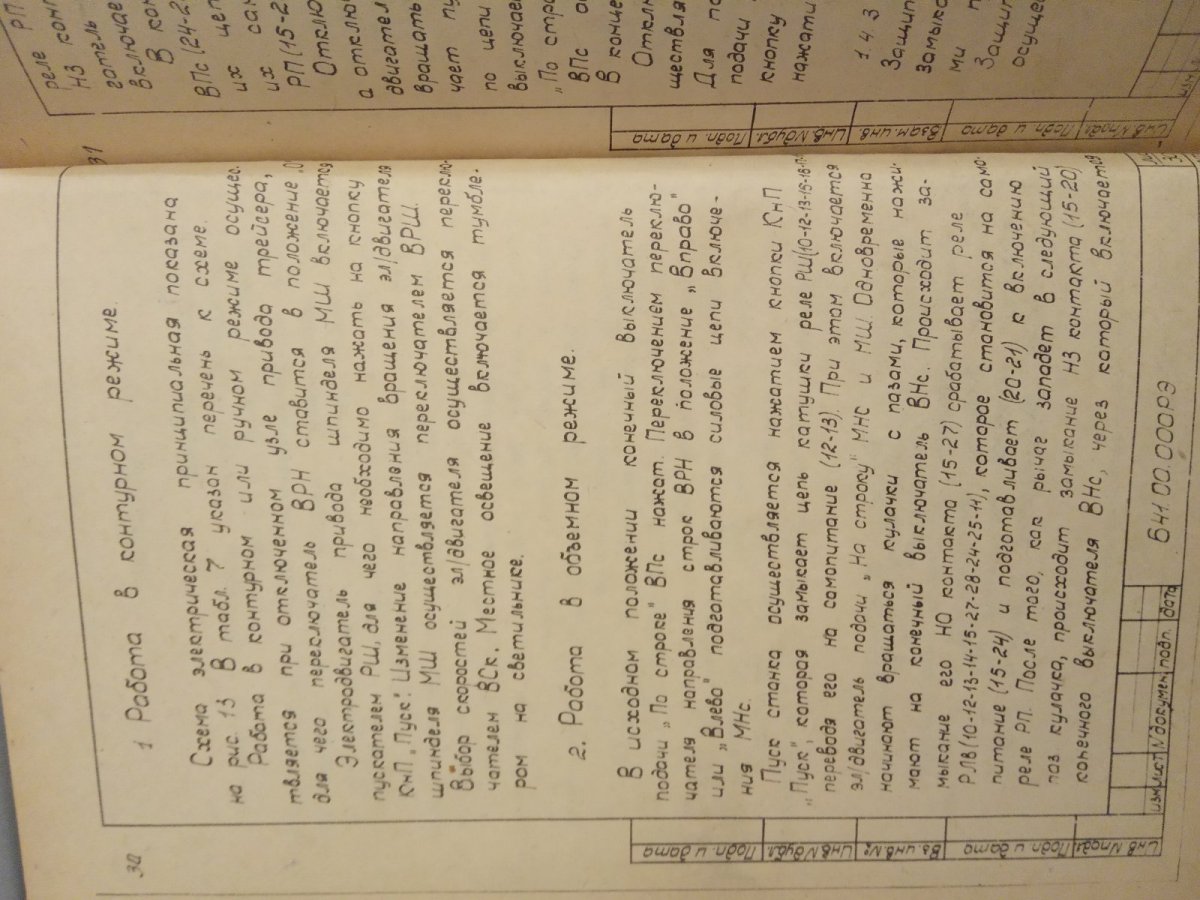 30
1 Работа в контурном режиме.
Схема электрическая принципиальная показана
на рис. 13 В табл. 7 указан перечень к схеме.
Работа в контурном или ручном режиме осущес-
твляется при отключенном узле привода трейсера,
для чего переключатель ВРН ставится в положение „0
Электродвигатель привода шпинделя МШ включается
пускателем РШ, для чего необходимо нажать на кнопку
КнП „Пуск". Изменение направления вращения эл/двигателя
шпинделя МШ осуществляется переключателем ВРШ.
Выбор скоростей эл/двигателя осуществляется переклю-
чателем ВСк. Местное освещение включается тумбле-
ром на светильнике.
2. Работа в объемном режиме.
В исходном положении конечный выключатель
подачи „По строке" ВПс нажат. Переключением переклю-
чателя направления строк ВРН в положение „Вправо"
или „Влево" подготавливаются силовые цепи включе-
ния МНс.
Пуск станка осуществляется нажатием кнопки КнП
„Пуск", которая замыкает цепь катушки реле РШ(10-12-13-15-16-
переводя его на самопитание (12-13). При этом включается
эл/двигатель подачи „На строку" МНС и МШ. Одновременно
начинают вращаться кулачки с пазами, которые нажи-
мают на конечный выключатель ВНс. Происходит за-
мыкание его НО контакта (15-27) срабатывает реле
РЛВ(10-12-13-14-15-27-28-24-25-11), которое становится на само-
питание (15-24) и подготавливает (20-21) к включению
реле РП. После того, как рычаг западет в следующий
паз кулачка, происходит замыкание НЗ контакта (15-20)
конечного выключателя ВНс, через который включается
Инв Nподл.
Подп и дата
Вз. инв. №
Инв Nдубл.
Подп. и дата
изм
лист
N докумен.
подп.
дата
БЧ1.00.000РЭ
31
реле РП
НЗ конт
гатель
включае
В кон
ВПс (24-2
их цеп
их сам
РП (15-2
Отклю
а отклю
двигател
вращать
чает пу
по цепи
выключае
„По стро
ВПс о
В конце
Откл
ществля
Для по
подачи
кнопку
нажати
1.4.3
Защит
Замыка
ми п
Защит
осущес
Инв Nподл.
Подп и дата
Взам. инв.
Инв Nдубл.
Подп. и дата